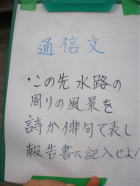 通信文
・この先水路の
周りの風景を
詩か俳句で表し
報告書に記入せよ!